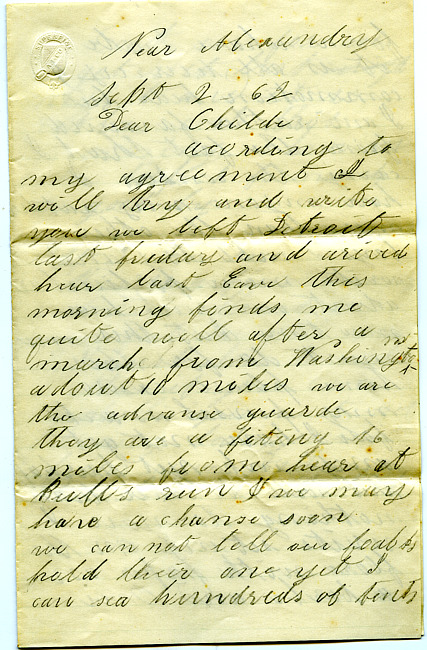 Near Alexandry
Sept 2 62
Dear Childe
acording to
my agreement I
will try and write
you we left Detroit
last friday and arived
hear last Eave this
morning finds me
quite well after a
march from Washington
adout 10 miles we are
the advanse guarde
they are a fiteing 16
miles from hear at
Bulls run I we may
have a chanse soon
we cannot tell our foalks
hold their one yet I
can sea hundreds of tents